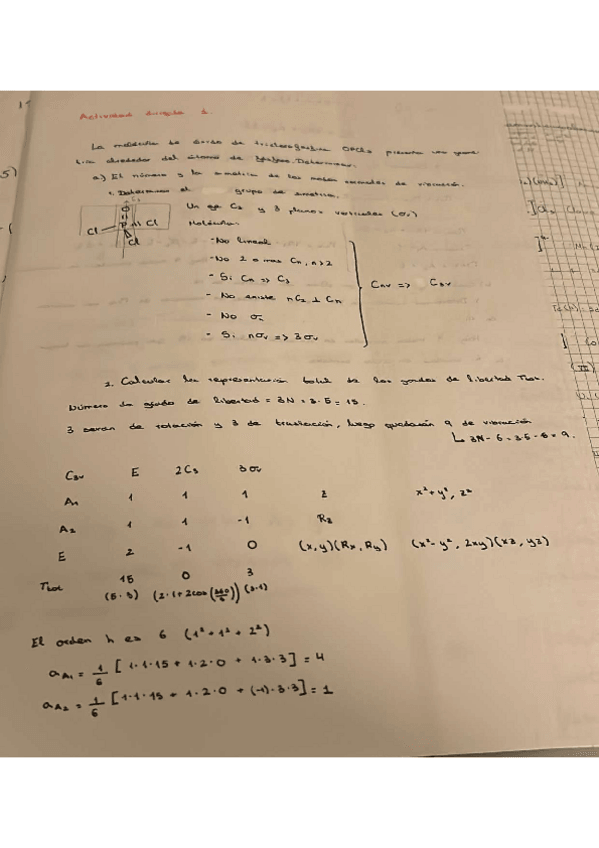 Actividad Simple 1.
La molécula de óxido de triclorofósforo OPCl3 presenta una
tría alrededor del átomo de fósforo. Determinar:
a) El número y la simetría de los modos normales de vibración.
1. Determinar el grupo de simetría.
Un eje C3 y 3 planos verticales (σv)
O
P
Cl
Cl
Cl
Molécula:
- No lineal
- No 2 o más Cn, n>2
- Si Cn => C3
- No existe nC2 ⊥ Cn
- No σh
- Si nσv => 3σv
Cnv => C3v
2. Calcular la representación total de los grados de libertad Γtot.
Número de grados de libertad = 3N = 3·5 = 15.
3 serán de rotación y 3 de traslación, luego quedarán 9 de vibración
↳ 3N-6 = 3·5-6 = 9.
C3v E 2C3 3σv
A1 1 1 1 z x²+y², z²
A2 1 1 -1 Rz
E 2 -1 0 (x,y)(Rx, Ry) (x²-y², 2xy)(xz, yz)
Γtot 15 0 3
(5·3) (2·1+2cos(360/3)) (3·1)
El orden h es 6 (1²+1²+2²)
aA1 = 1/6 [1·1·15 + 1·2·0 + 1·3·3] = 4
aA2 = 1/6 [1·1·15 + 1·2·0 + (-1)·3·3] = 1